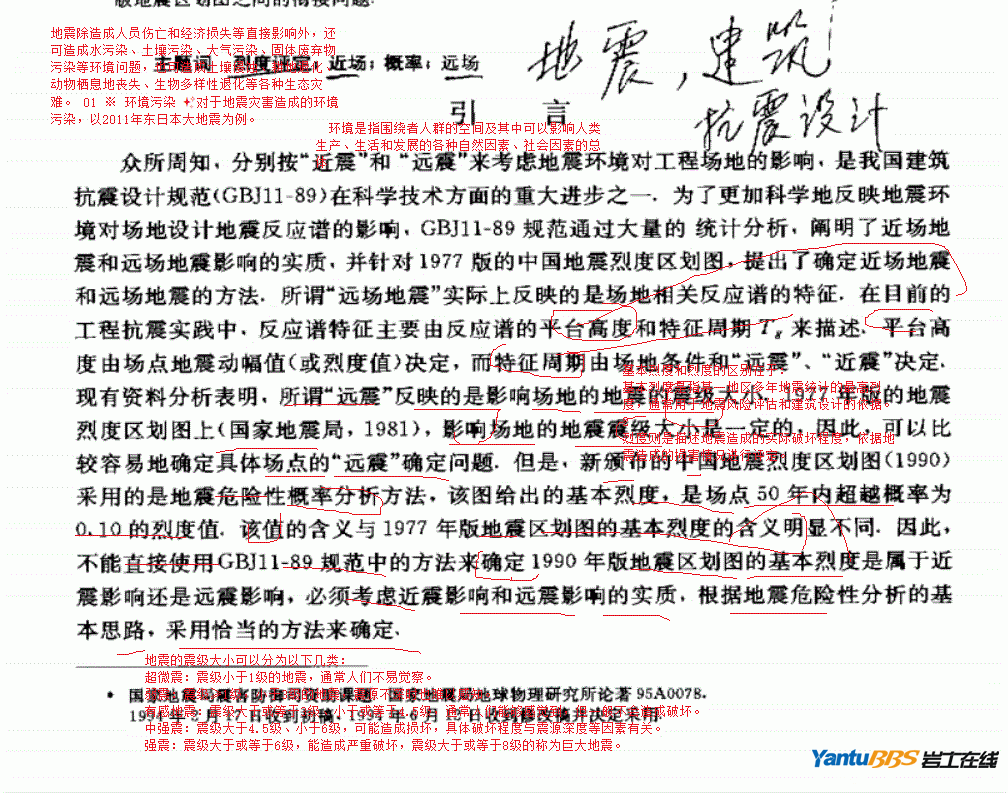 版地震区划图之间的衔接问题.
地震除造成人员伤亡和经济损失等直接影响外，还
可造成水污染、土壤污染、大气污染、固体废弃物
污染等环境问题，
动物栖息地丧失、生物多样性退化等各种生态灾
难。 01 ※ 环境污染 对于地震灾害造成的环境
污染，以2011年东日本大地震为例。
主题词 烈度评定；近场；概率；远场
地震，建筑！
抗震设计
引 言
环境是指围绕着人群的空间及其中可以影响人类
生产、生活和发展的各种自然因素、社会因素的总
众所周知，分别按“近震”和“远震”来考虑地震环境对工程场地的影响，是我国建筑
抗震设计规范(GBJ11-89)在科学技术方面的重大进步之一. 为了更加科学地反映地震环
境对场地设计地震反应谱的影响，GBJ11-89 规范通过大量的 统计分析，阐明了近场地
震和远场地震影响的实质，并针对1977版的中国地震烈度区划图，提出了确定近场地震
和远场地震的方法. 所谓“远场地震”实际上反映的是场地相关反应谱的特征. 在目前的
工程抗震实践中，反应谱特征主要由反应谱的平台高度和特征周期 Tg 来描述. 平台高
度由场点地震动幅值(或烈度值)决定，而特征周期由场地条件和“远震”、“近震”决定.
基本烈度和烈度的区别在于
现有资料分析表明，所谓“远震”反映的是影响场地的地震的震级大小. 1977 年版的地震
基本烈度是指某一地区多年地震统计的最高烈
度，通常用于地震风险评估和建筑设计的依据。
烈度区划图上(国家地震局，1981)，影响场地的地震震级大小是一定的，因此，可以比
烈度则是描述地震造成的实际破坏程度，依据地
震造成的损害情况进行评定。
较容易地确定具体场点的“远震”确定问题. 但是，新颁布的中国地震烈度区划图(1990)
采用的是地震危险性概率分析方法，该图给出的基本烈度，是场点 50 年内超越概率为
0.10 的烈度值. 该值的含义与 1977 年版地震区划图的基本烈度的含义明显不同. 因此，
不能直接使用GBJ11-89 规范中的方法来确定 1990 年版地震区划图的基本烈度是属于近
震影响还是远震影响，必须考虑近震影响和远震影响的实质，根据地震危险性分析的基
本思路，采用恰当的方法来确定.
地震的震级大小可以分为以下几类：
超微震：震级小于1级的地震，通常人们不易觉察。
* 国家地震局震害防御司资助课题，国家地震局地球物理研究所论著 95A0078.
有感地震：震级大于或等于3级、小于或等于4.5级，
1994 年 2 月 17 日收到初稿，1994 年 6 月 12 日收到修改稿并决定采用.
中强震：震级大于4.5级、小于6级，可能造成损坏，具体破坏程度与震源深度等因素有关。
强震：震级大于或等于6级，能造成严重破坏，震级大于或等于8级的称为巨大地震。
YantuBBS 岩土在线